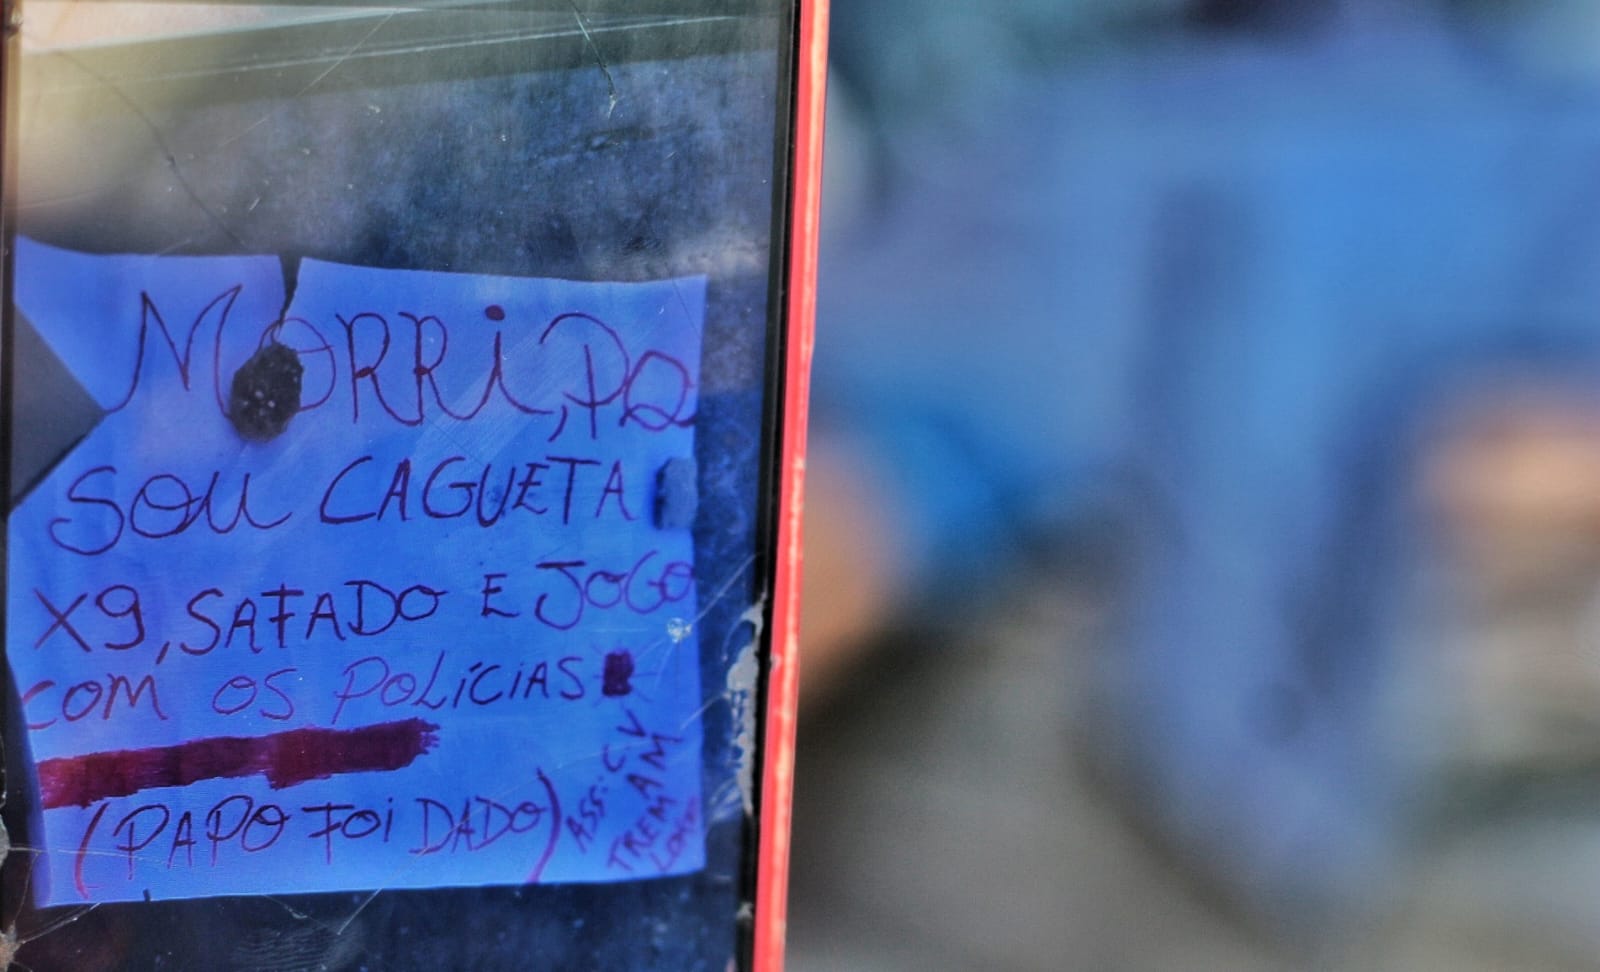 MORRI, PQ
SOU CAGUETA
X9, SAFADO E JOGO
COM OS POLÍCIAS
(PAPO FOI DADO)
ASS: C.V
TREM AM